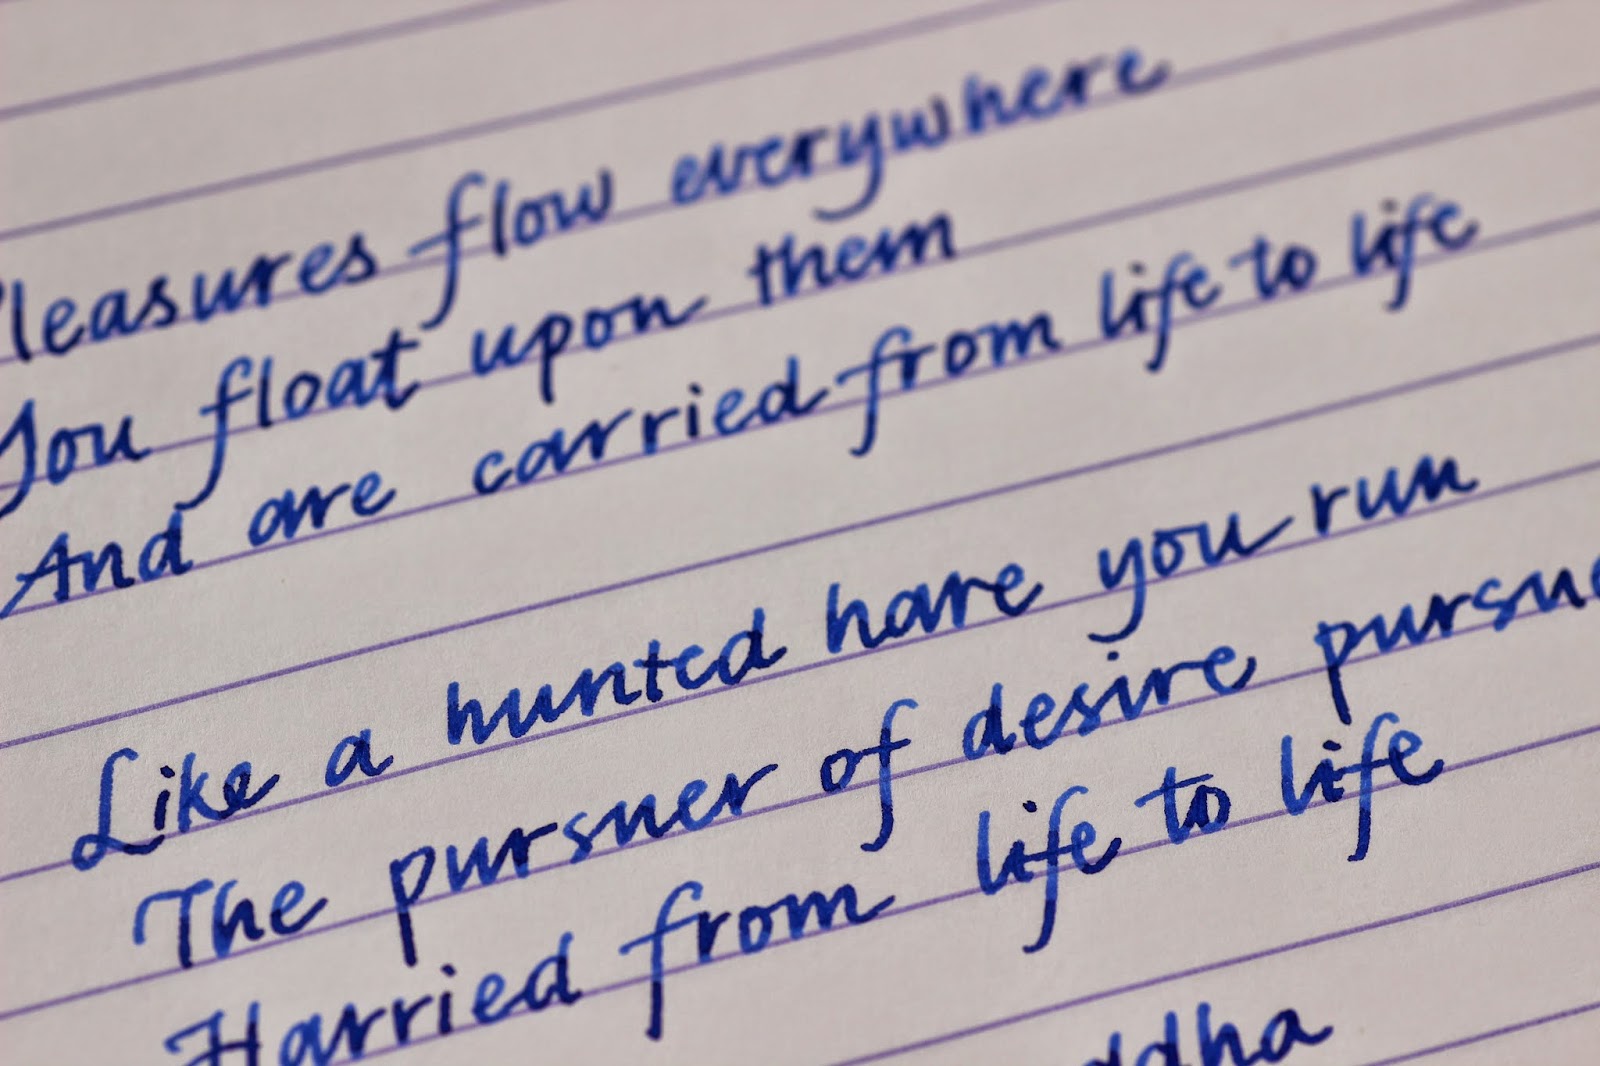 Pleasures flow everywhere
You float upon them
And are carried from life to life
Like a hunted hare you run
The pursuer of desire pursue
Harried from life to life
ddha